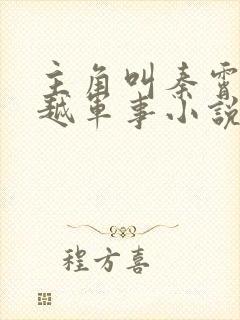 主角叫秦霄
越軍事小説
程方喜